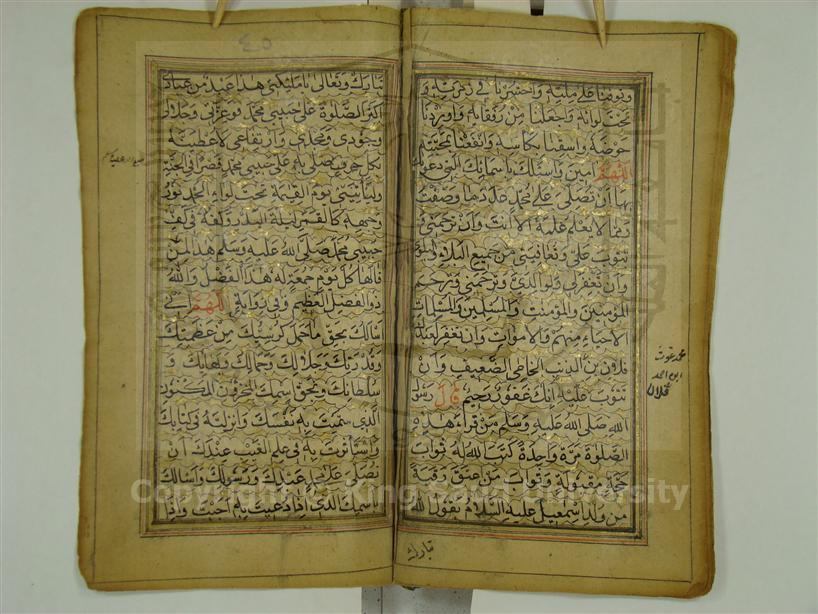 وتوفنا على ملته واحشرنا في زمرته و
تحت لوائه واجعلنا من رفقائه واوردنا
حوضه واسقنا بكاسه وانفعنا بمحبته
اللهم امين واسئلك باسمائك التي دعوتك
بها ان تصلي على محمد عدد ما وصفت
ومما لا يعلم علمه الا انت وان ترحمني و
تتوب علي وتعافيني من جميع البلاء والبلواء
وان تغفر لي ولوالدي وترحمني وترحم
المؤمنين والمؤمنات والمسلمين والمسلمات
الاحياء منهم والاموات وان تغفر لعبدك
فلان بن الذنب الخاطي الضعيف وان
تتوب عليه انك غفور رحيم قال رسول
الله صلى الله عليه وسلم من قراء هذه
الصلوة مرة واحدة كتب الله له ثواب
حجة مقبولة وثواب من عتق رقبة
من ولد اسمعيل عليه السلام يقول الله
محمد غوث
ابن احمد
فلان
تبارك
٤٥
تبارك وتعالى يا ملئكتي هذا عبد من عبادي
اكثر الصلوة على حبيبي محمد فوعزتي وجلالي
وجودي ومجدي وارتفاعي لاعطينه
بكل حرف صلى به على حبيبي محمد قصرا في الجنة
ولياتيني يوم القيمة تحت لواء الحمد نور
وجهه كالقمر ليلة البدر وكفه في كف
حبيبي محمد صلى الله عليه وسلم هذا لمن
قالها كل يوم جمعة له هذا الفضل والله
ذو الفضل العظيم وفي رواية اللهم اني
اسالك بحق ما حمل كرسيك من عظمتك
وقدرتك وجلالك وجمالك وبهائك و
سلطانك وبحق اسمك المخزون المكنون
الذي سميت به نفسك وانزلته في كتابك
واستاثرت به في علم الغيب عندك ان
تصلي على محمد عبدك ورسولك واسالك
باسمك الذي اذا دعيت به اجبت واذا
Copyright © King Saud University